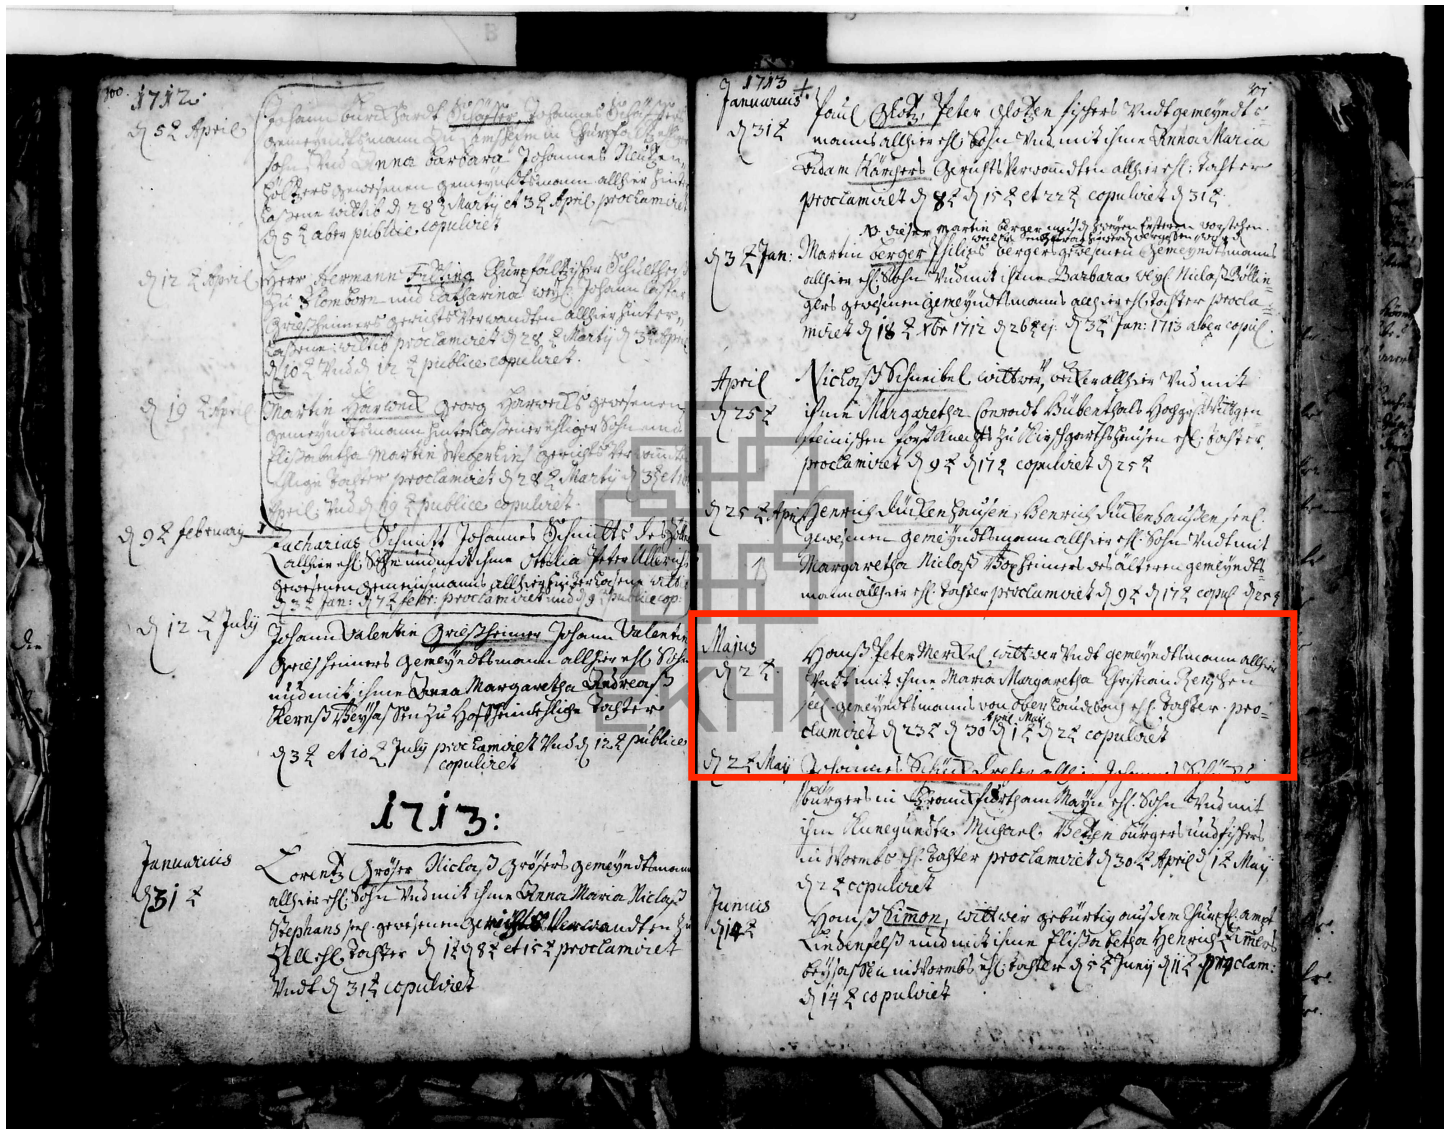 300.
1712.
d 5t April
Johann Burckhardt Schäffer, Johannes Schäffers
gemeyndtsmann
Sohn Und Anna Barbara Johannes
gewesenen gemeyndtsmann allhier hinter
laßene wittib d 28t Marty et 3t April proclamiret
d 5t aber publice copuliret
d 12t April
Herr Hermann Churpfältzischer Schultheiß
zu Flomborn und Catharina weyl. Johann
Grießheimers gerichts Verwandten allhier hinter-
laßene wittib proclamiret d 28t Marty d 3t April
d 10t Und d 12t publice copuliret.
d 19t April
Martin Harweil Georg Harweils gewesenen
gemeyndtsmann hinterlaßener ehliger Sohn und
Elisabetha Martin gerichts Verwandten
ehlige Tochter proclamiret d 28t Marty d 3t et 10
April. Und d 19t publice copuliret.
d 9t February
Zacharias Schmitt Johannes Schmitts des
allhier ehl. Sohn und mit ihme Ottilia Peter
gewesenen gemeinsmanns allhier hinterlasene witt:
d 3t Jan: d 7t febr: proclamiret und d 9t publice cop:
d 12t July
Johann Valentin Grießheimer Johann Valentin
Grießheimers gemeyndtsmann allhier ehl. Sohn
und mit ihme Anna Margaretha Andreaß
Kernß Beysaßen zu Hoffheim ehliche Tochter
d 3t et 10t July proclamiret Und d 12t publice
copuliret
1713:
Januarius
d 31t
Lorentz Gröser Niclaß Grösers gemeyndtsmann
allhier ehl. Sohn Und mit ihme Anna Maria Niclaß
Stephans seel. gewesenen Gerichts Verwandten zu
Zell ehl. Tochter d 1t d 8t et 15t proclamiret
Undt d 31t copuliret
301
1713
Januarius
d 31t
Paul Glotz, Peter Glotzen fischers Undt gemeyndts-
manns allhier ehl. Sohn Und mit ihme Anna Maria
Adam Kärchers Gerichts Verwandten allhier ehl: Tochter
proclamiret d 8t d 15t et 22t copuliret d 31t.
NB dieser Martin Berger muß d zweyen Ersteren vorstehen
d 3t Jan:
Martin Berger Philips Bergers gewesenen Gemeyndtsmanns
allhier ehl. Sohn Und mit ihme Barbara weyl. Niclaß Böllin-
gers gewesenen gemeyndtsmanns allhier ehl. Tochter procla-
miret d 18t Xbr 1712 d 26t ej. d 3t Jan: 1713 aber copul.
April
d 25t
Nicklaß Schneibel wittwer, allhier Und mit
ihme Margaretha Conradt Bübenthals Hochgräfl Wittgen
steinischen forst Knechts zu ehl. Tochter
proclamiret d 9t d 17t copuliret d 25t
d 25t April
Henrich Dückenhausen, Henrich Dückenhaußen seel.
gewesenen gemeyndtsmann allhier ehl. Sohn Undt mit
Margaretha Niclaß Boxheimers des älteren gemeyndts-
mann allhier ehl. Tochter proclamiret d 9t d 17t copul. d 25t
Majus
d 2t.
Hanß Peter Merckel, wittwer Undt gemeyndtsmann allhier
Undt mit ihme Maria Margaretha Christian
seel. gemeyndtsmanns von ober Laudbach ehl. Tochter pro-
April May
clamiret d 23t d 30 d 1t d 2t copuliret
d 2t May
Johannes Schütz allhier Johannes Schützs
bürgers in Franckfurth am Mayn ehl. Sohn Und mit
ihm Kunegundta, Michael bürgers und fischers
in Wormbs ehl. Tochter proclamiret d 30t April d 1t May
d 2t copuliret
Junius
d 14t
Hanß Simmon, wittwer gebürtig auß dem Churpf. ampt
Lindenfelß und mit ihme Elisabetha Henrich Zimers
beysaßen in Wormbs ehl. Tochter d 5t Juny d 11t proclam:
d 14t copuliret
EKHN